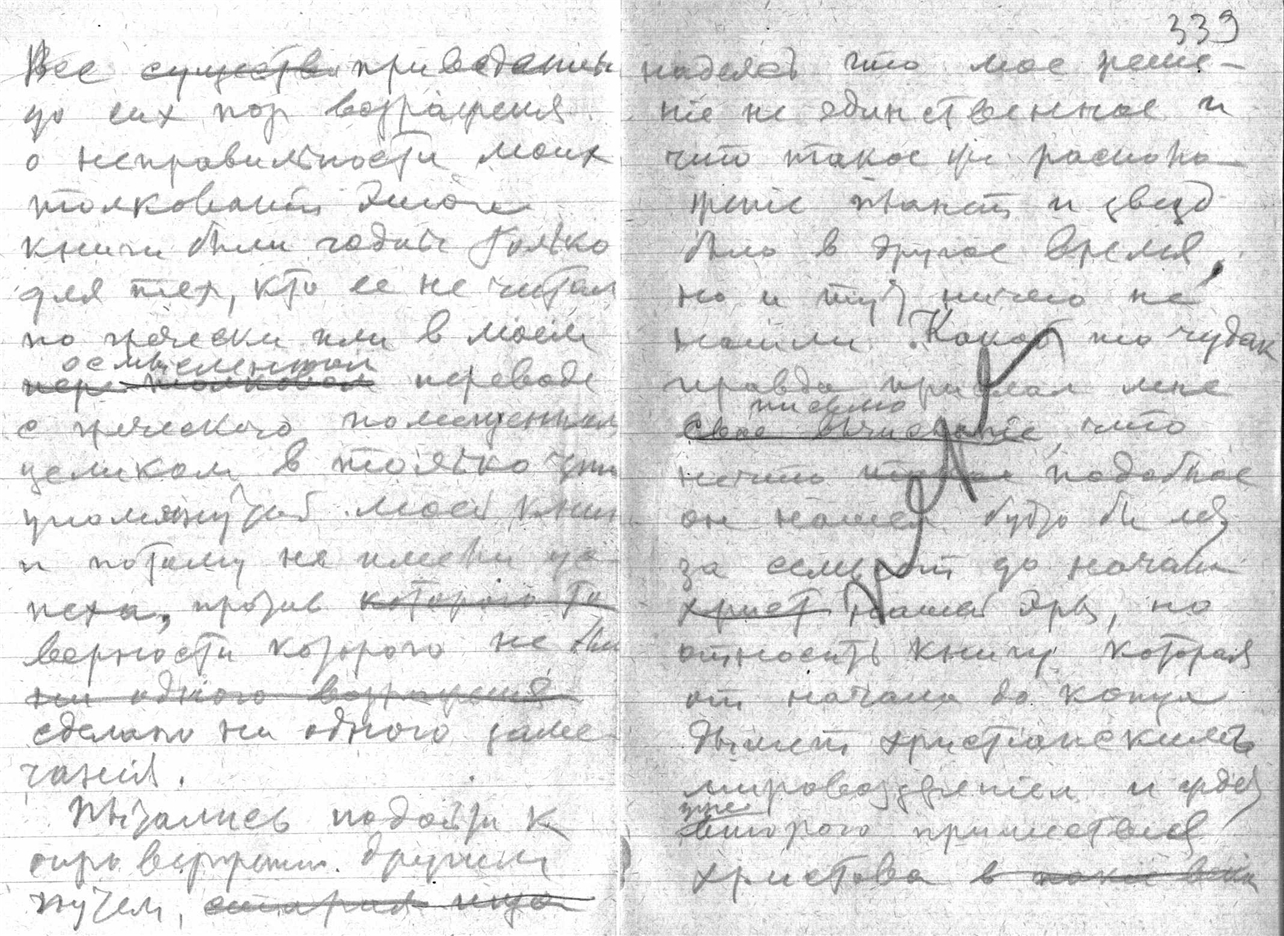 Все существ приведенны
до сих пор возраженя
о неправильности моих
толкований этой
книги были годны только
для тех, кто ее не читал
по гречески или в моем
осмысленном
переводе
с греческого помещенном
целиком в только что
упомянутой моей книг
и потому не имели ус-
пеха, против которого
верности которого не бы
ни одного возражения
сделано ни одного заме-
чания.
Пытались подойти к
опровержению другим
путем,
339
надеясь что мое реше-
ние не единственное и
что такое же располо-
жение планет и звезд
было в другое время,
но и тут ничего не
нашли. Какой то чудак
правда прислал мне
письмо
свое вычисление, что
нечто подобное
он нашел будто бы лет
за семьсот до начала
христ нашей эры, но
относить книгу которая
от начала до конца
дышит христианским
мировоззрением и ждет
уже
второго пришествия
христова в